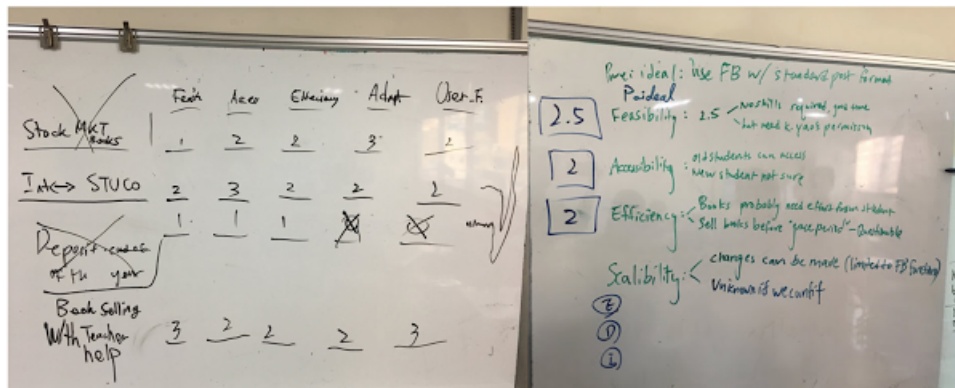 Feasib Access Efficiency Adapt User F.
Stock MKT
Books
1 2 2 3 2
Int<-> STUCO 2 3 2 2 2
1 1 1
Deposit
of th year
Book Selling
With Teacher
help
3 2 2 2 3
ideal: Use FB w/ standard post format
2.5 Feasibility: 2.5
No skills required
but need permission
2 Accessibility:
old students can access
New student not sure
2 Efficiency:
Books probably need effort from student
Sell books before "grace period" - Questionable
Scalibility:
changes can be made (limited to FB functions)
Unknown if we can